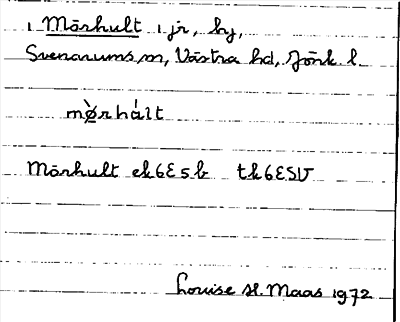 1 Mårhult 1 jr, by,
Svenarums sn, Västra hd, Jönk. l.
mø̀rhál̀t
Mårhult ek6E5b tk6E5V
Louise H. Maas 1972